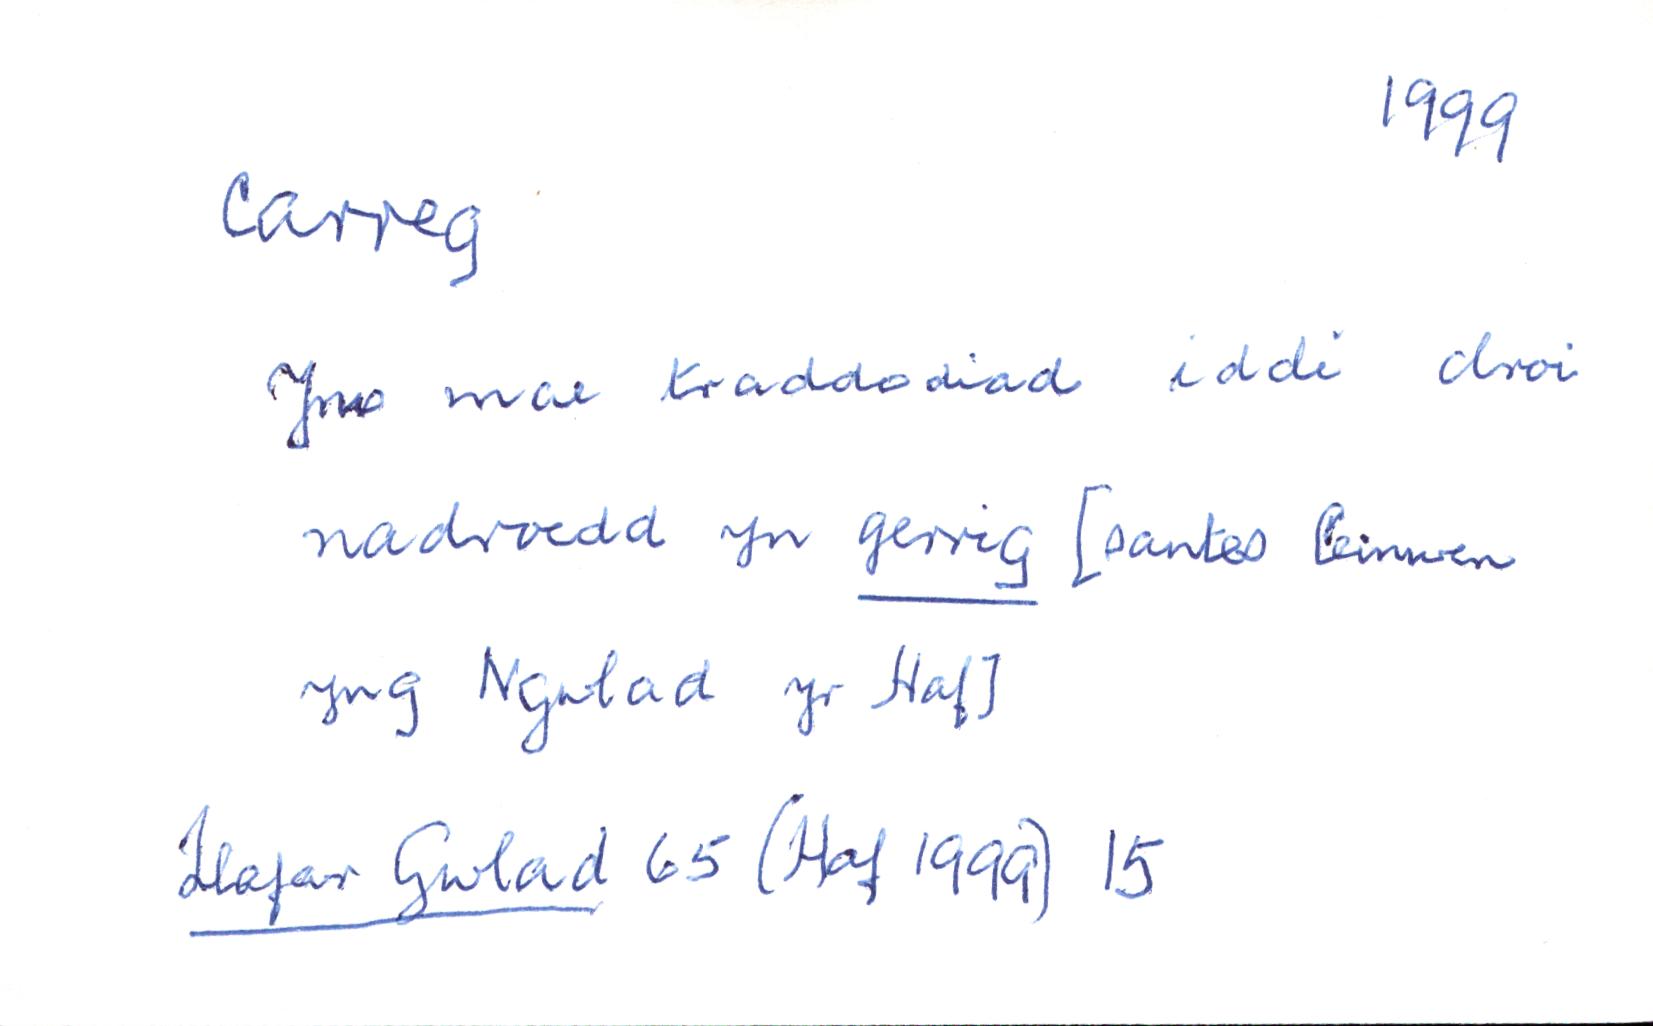 1999
Carreg
Yno mae traddodiad iddi droi
nadroedd yn gerrig [santes Ceinwen
yng Ngwlad yr Haf]
Llafar Gwlad 65 (Haf 1999) 15